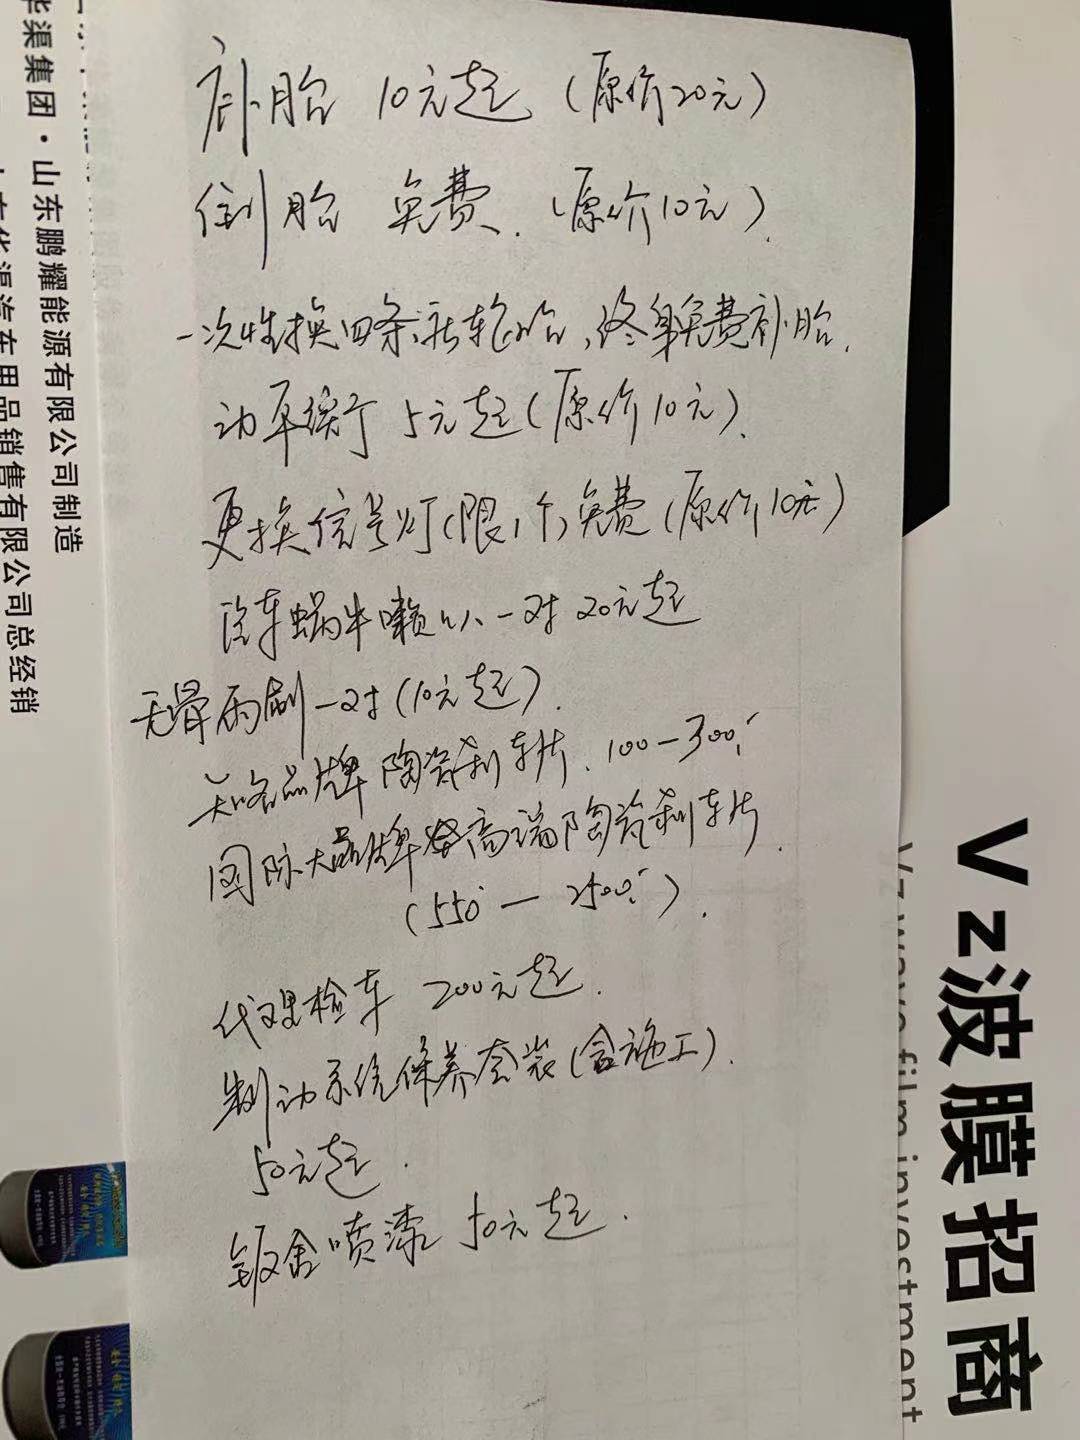 补胎 10元起 (原价20元)
倒胎 免费. (原价10元).
一次性换四条新轮胎,终身免费补胎.
动平衡 5元起(原价10元).
更换信号灯(限1个)免费(原价10元)
汽车蜗牛喇叭一对 20元起
无骨雨刷一对(10元起).
知名品牌陶瓷刹车片. 100—300.
国际大品牌高端陶瓷刹车片.
(550—2500).
代理检车 200元起.
制动系统保养套装(含施工).
50元起.
钣金喷漆 50元起.
华渠集团·山东鹏耀能源有限公司制造
华渠汽车用品销售有限公司总经销
Vz波膜招商
Vz wave film investment